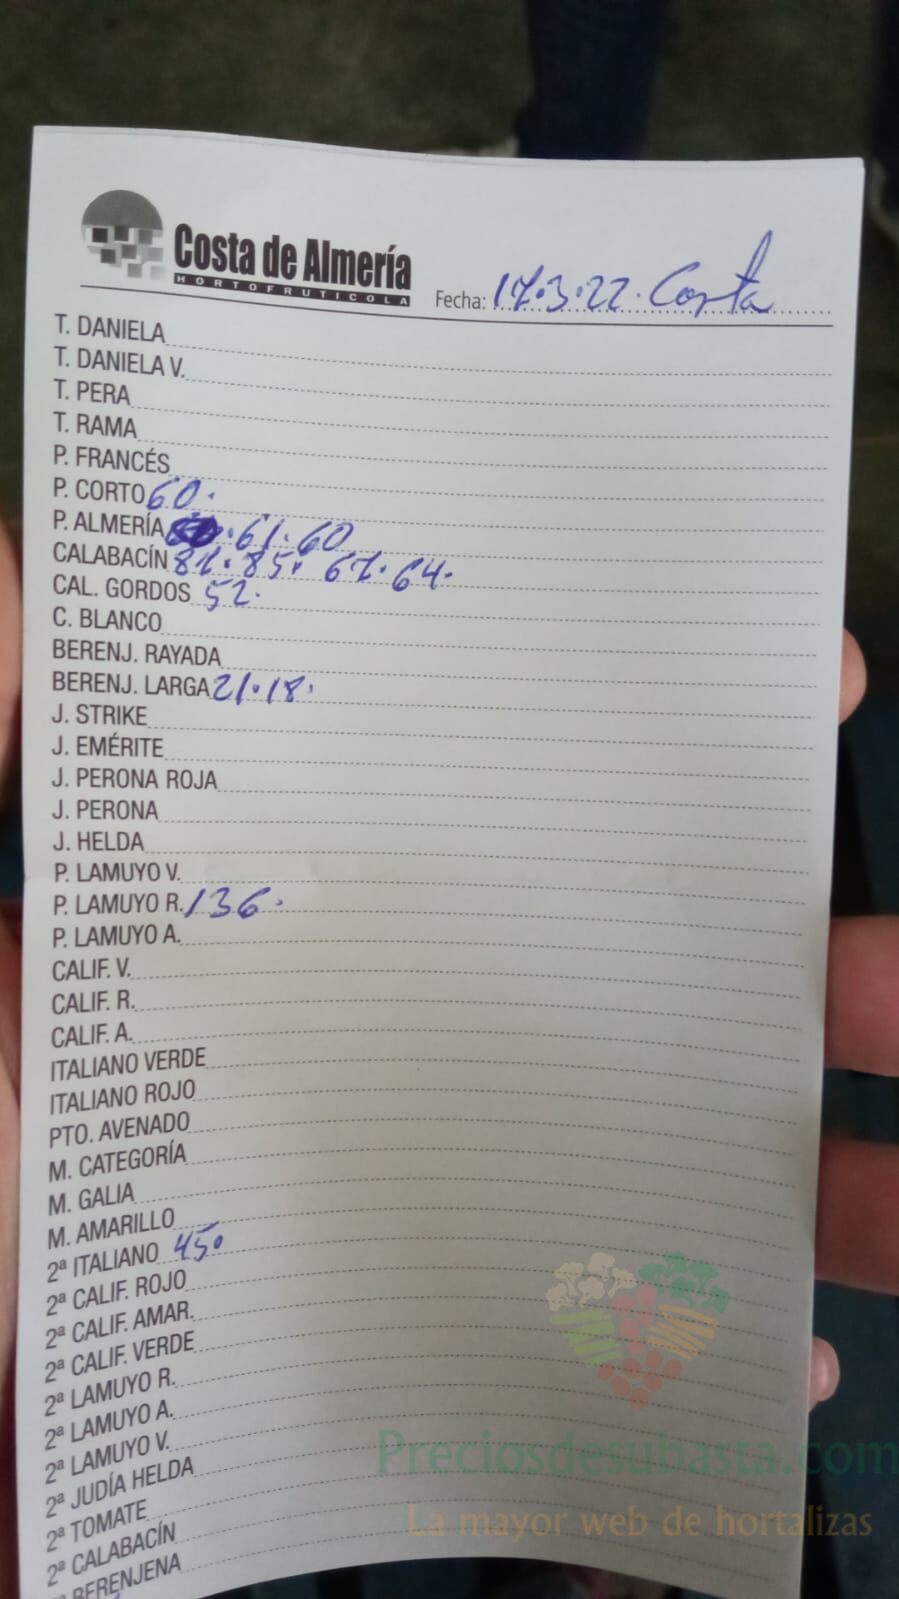 Costa de Almería
HORTOFRUTICOLA
Fecha: 17.3.22. Costa
T. DANIELA
T. DANIELA V.
T. PERA
T. RAMA
P. FRANCÉS
P. CORTO 60.
P. ALMERÍA . 61. 60
CALABACÍN 87. 85. 67. 64.
CAL. GORDOS 52.
C. BLANCO
BERENJ. RAYADA
BERENJ. LARGA 21. 18.
J. STRIKE
J. EMÉRITE
J. PERONA ROJA
J. PERONA
J. HELDA
P. LAMUYO V.
P. LAMUYO R. 136.
P. LAMUYO A.
CALIF. V.
CALIF. R.
CALIF. A.
ITALIANO VERDE
ITALIANO ROJO
PTO. AVENADO
M. CATEGORÍA
M. GALIA
M. AMARILLO
2ª ITALIANO 45.
2ª CALIF. ROJO
2ª CALIF. AMAR.
2ª CALIF. VERDE
2ª LAMUYO R.
2ª LAMUYO A.
2ª LAMUYO V.
2ª JUDÍA HELDA
2ª TOMATE
2ª CALABACÍN
BERENJENA
Preciosdesubasta.com
La mayor web de hortalizas